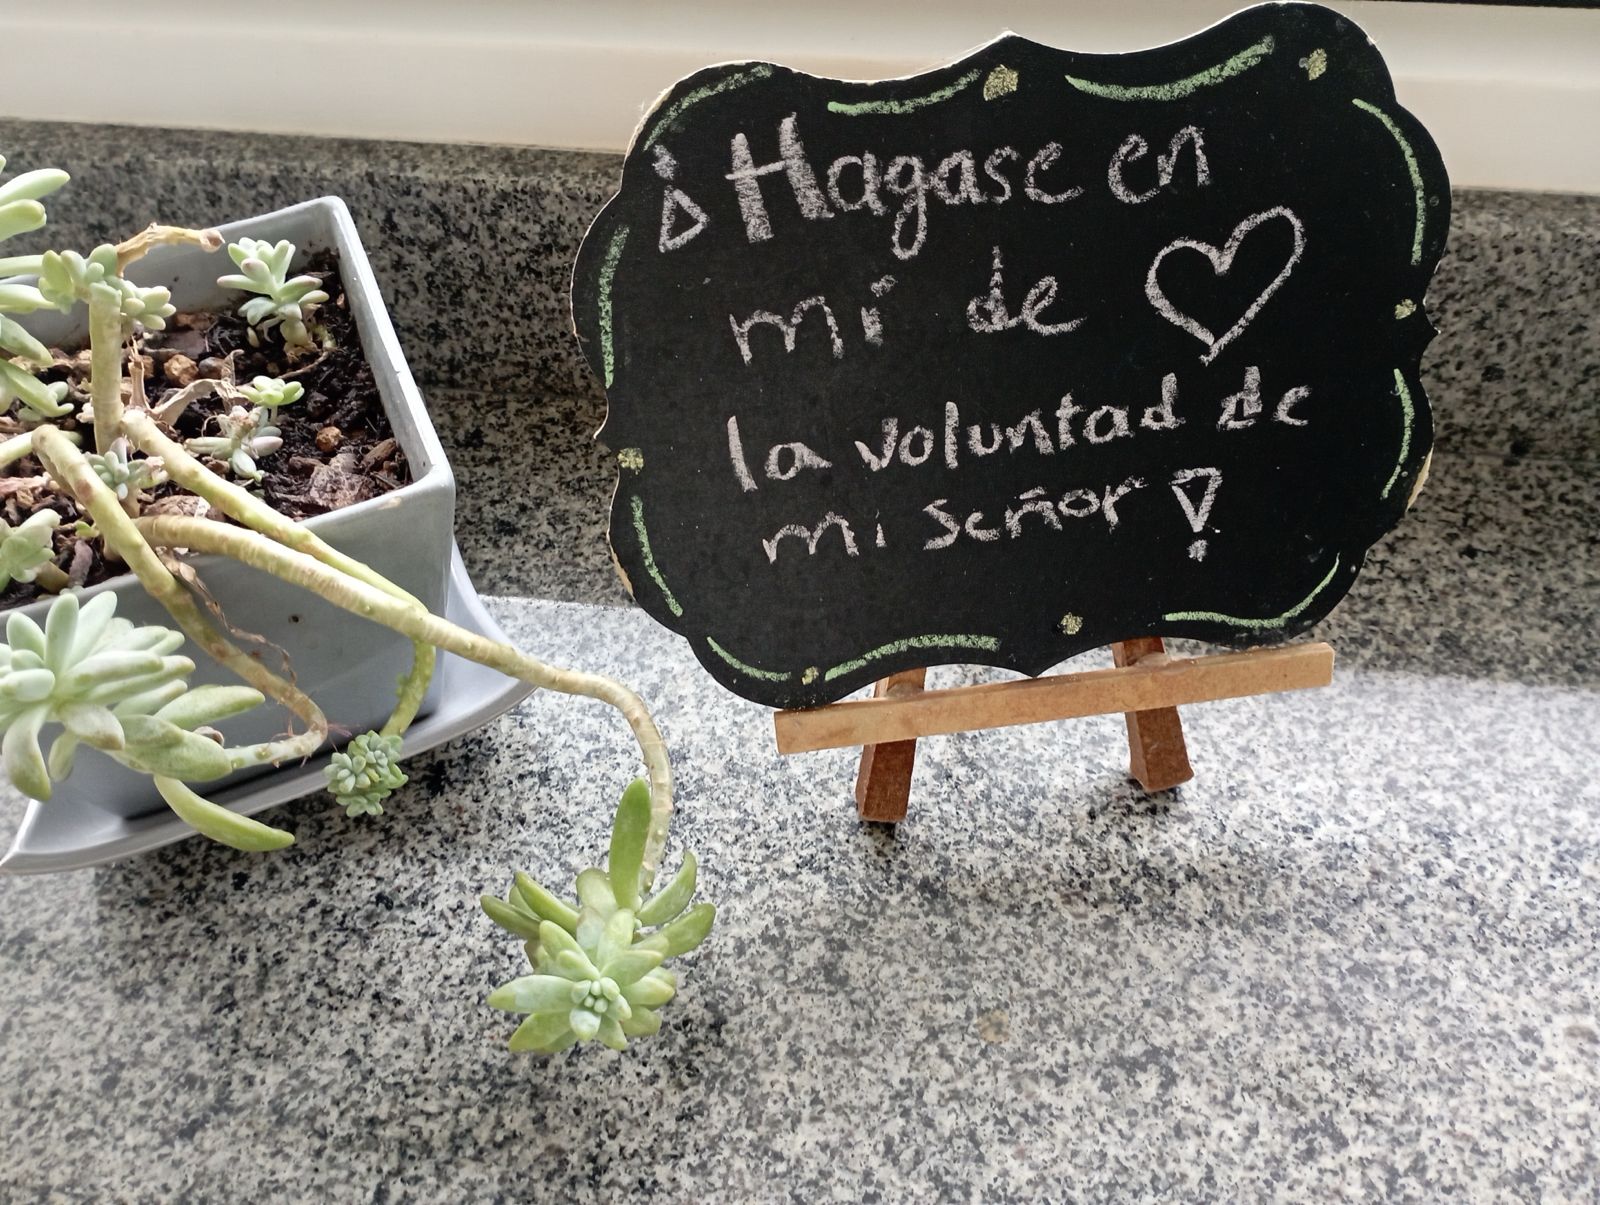 ¡Hagase en
mí de ♡
la voluntad de
mi señor!